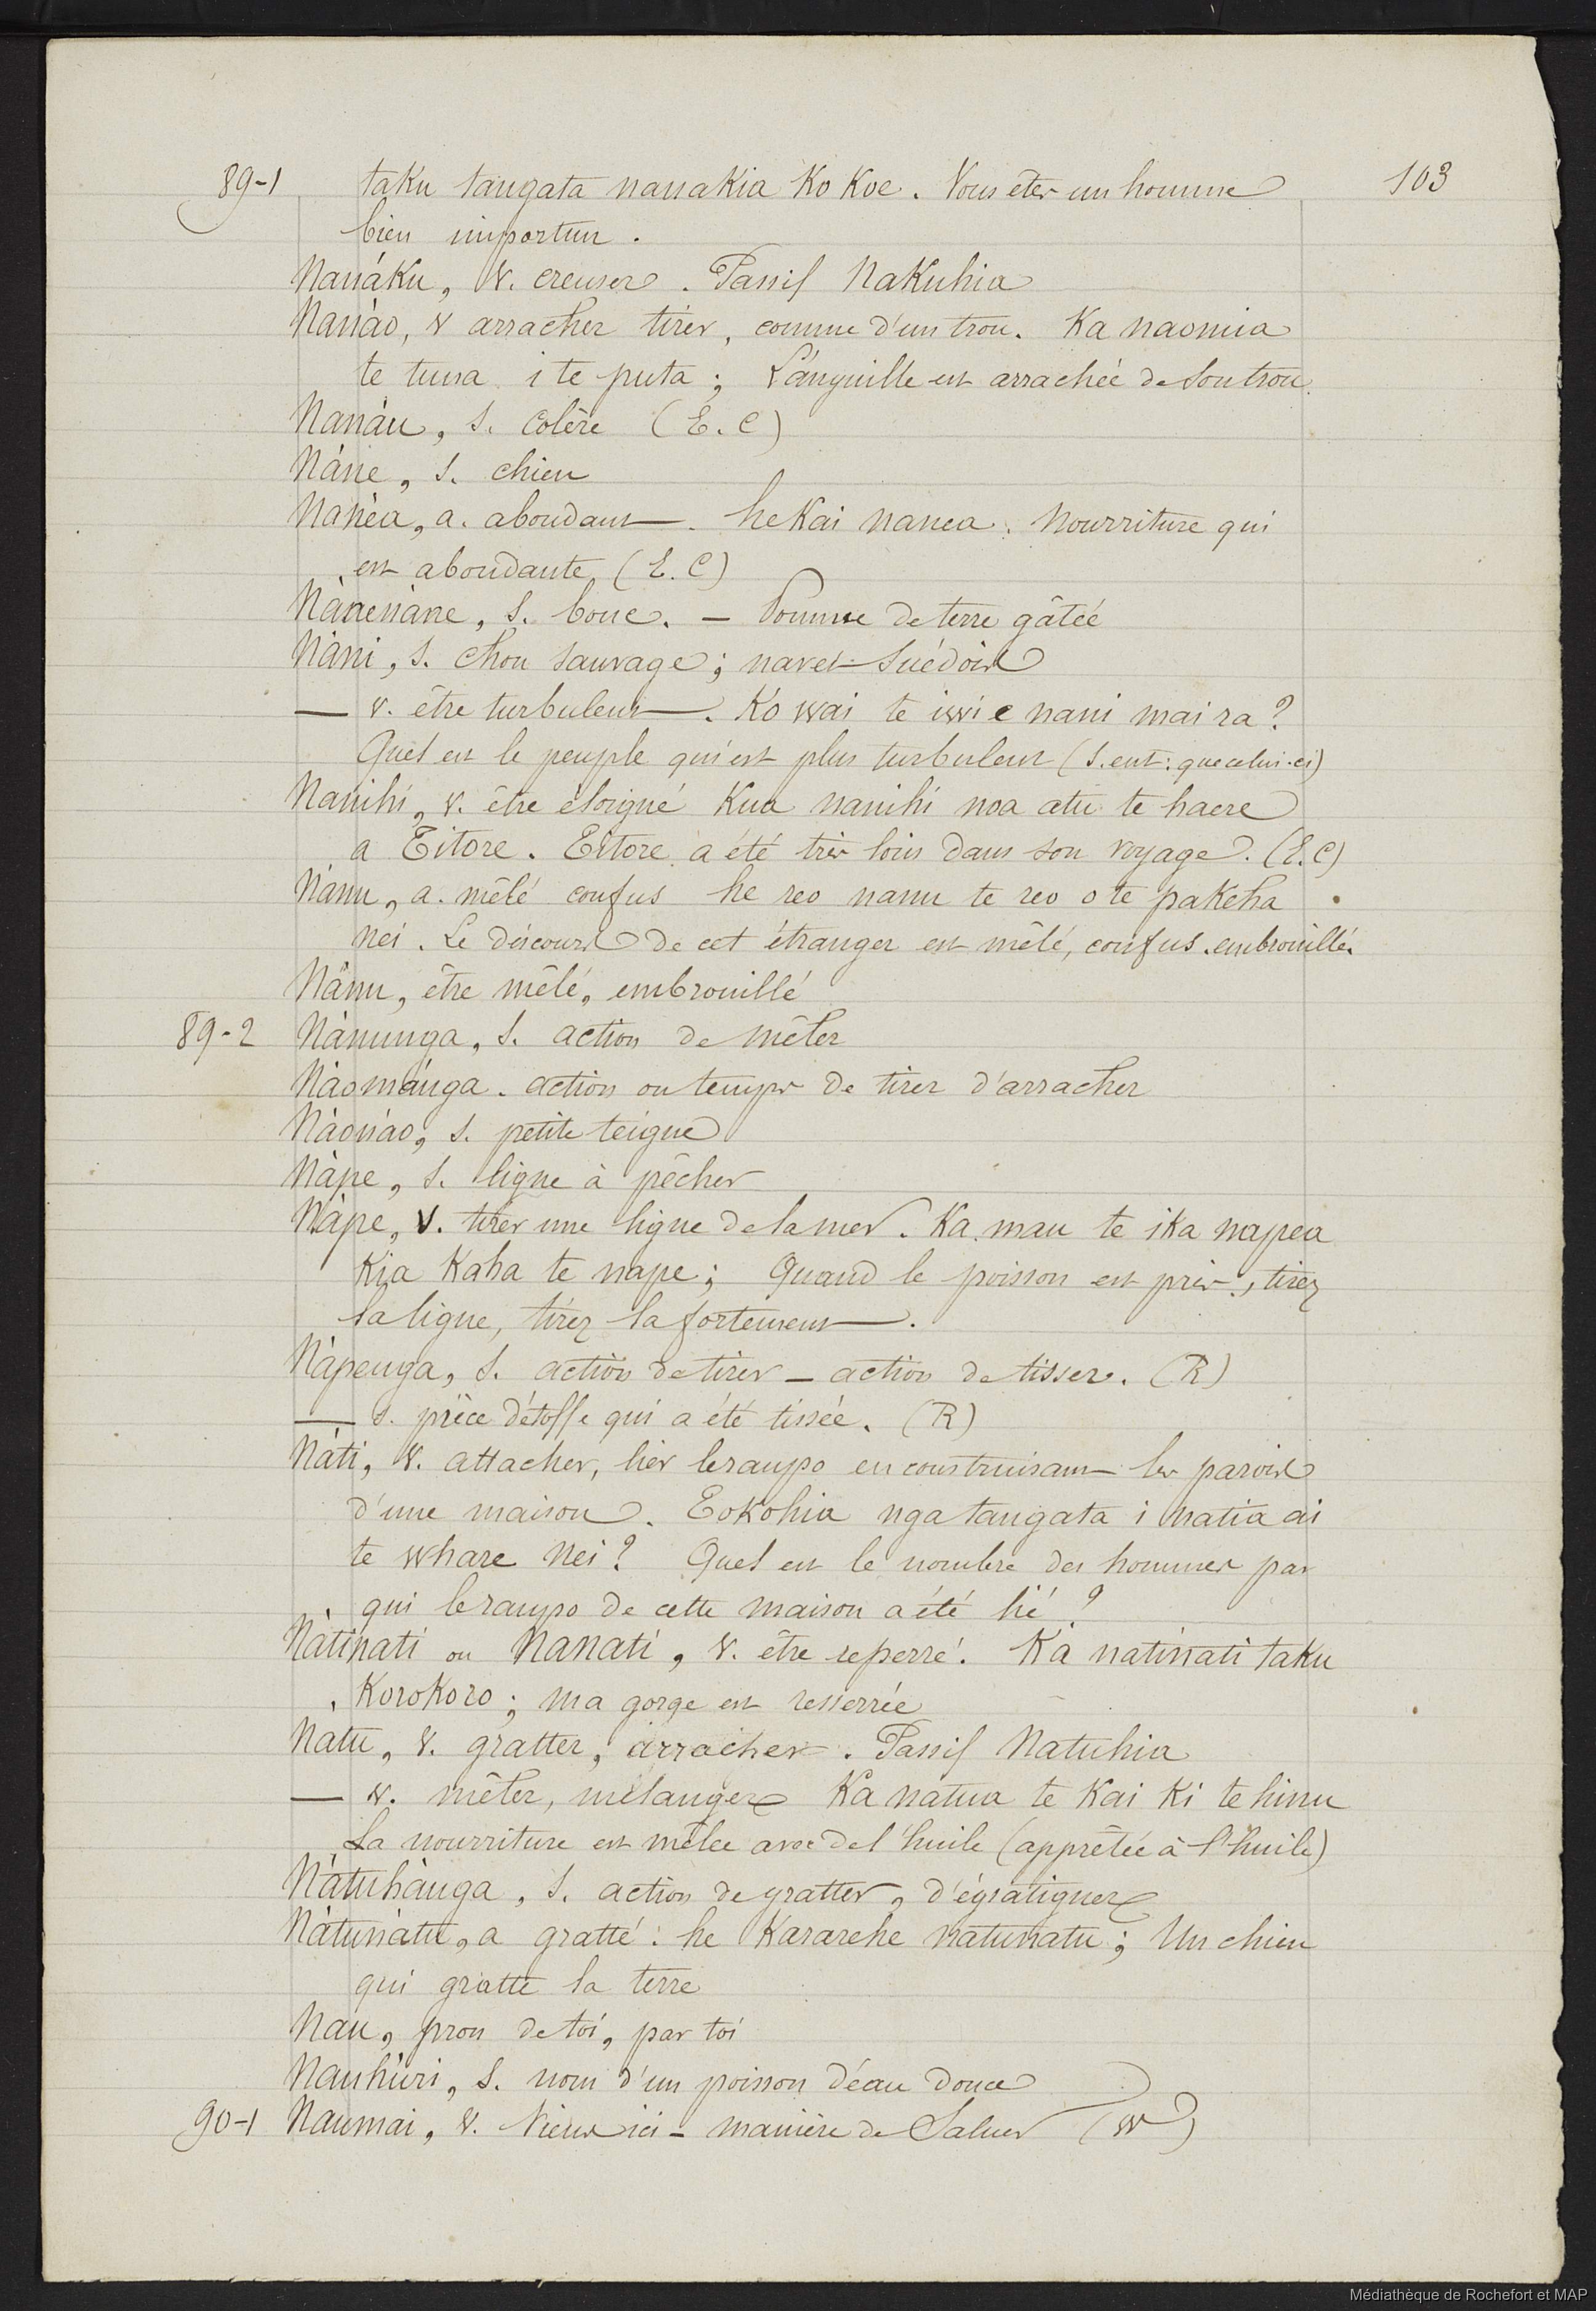 89-1 taku tangata nanakia Ko Koe. Vous êtes un homme 103
bien importun.
Nanáku, v. creuser. Passif Nakuhia
Nanáo, v arracher tirer, comme d'un trou. Ka naomia
te tuna i te puta; L'anguille est arrachée de son trou
Nanàu, s. Colère (E. C)
Náne, s. chien
Nanèa, a. abondant. he Kai nanea. Nourriture qui
est abondante (E. C)
Nànenàne, s. bouc. — Pomme de terre gâtée
Nàni, s. chou sauvage; navet suédois
— v. être turbulent. Ko wai te iwi e nani mai ra?
Quel est le peuple qui est plus turbulent (s.ent: que celui-ci)
Nanihi, v. être éloigné Kua nanihi noa atu te haere
a Titore. Titore a été très loin dans son voyage. (E. C)
Nánu, a. mêlé confus he reo nanu te reo o te pakeha
nei. Le discours de cet étranger est mêlé, confus. embrouillé.
Nánu, être mêlé, embrouillé
89-2 Nànunga, s. action de mêler
Nàománga. action ou temps de tirer d'arracher
Nàonáo, s. petite teigne
Nàpe, s. ligne à pêcher
Nàpe, v. tirer une ligne de la mer. Ka mau te ika napea
Kia Kaha te nape; Quand le poisson est pris, tirez
la ligne, tirez la fortement.
Nàpenga, s. action de tirer — action de tisser. (R)
— s. pièce d'étoffe qui a été tissée. (R)
Nàti, v. attacher, lier le raupo en construisant les parois
d'une maison. Tokohia nga tangata i natia ai
te whare nei? Quel est le nombre des hommes par
qui le raupo de cette maison a été lié?
Nàtinati ou Nanati, v. être resserré. Ka natinati taku
Korokoro; ma gorge est resserrée
Natu, v. gratter, arracher. Passif Natuhia
— v. mêler, mélanger Ka natua te Kai Ki te hinu
La nourriture est mêlée avec de l'huile (apprêtée à l'huile)
Nàtuhànga, s. action de gratter, d'égratigner
Nàtunàtu, a gratté: he Kararehe natunatu; Un chien
qui gratte la terre
Nau, pron de toi, par toi
Nauhùri, s. nom d'un poisson d'eau douce
90-1 Naumai, v. Viens ici — manière de Saluer (W)
Médiathèque de Rochefort et MAP